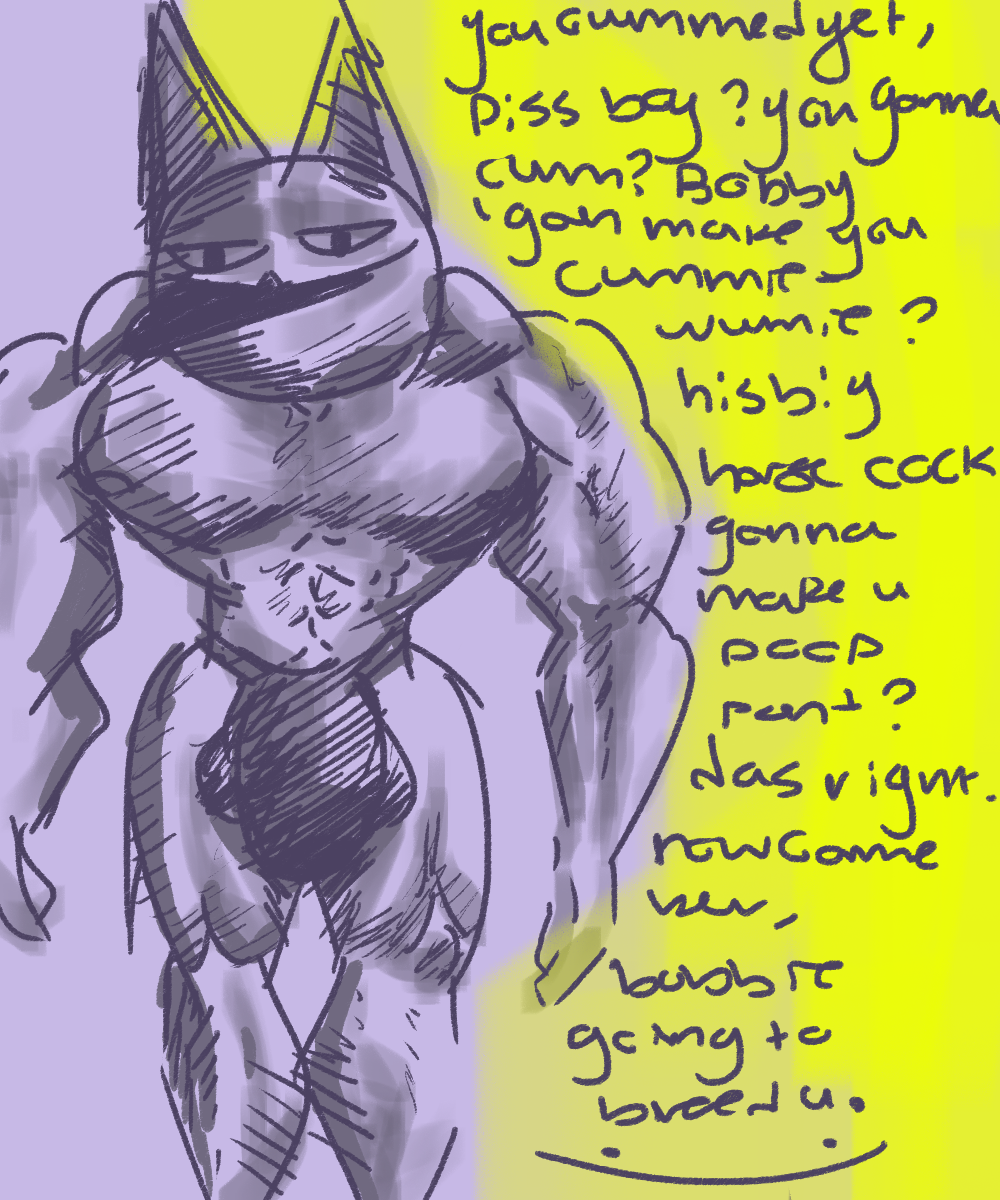 you cummed yet,
piss boy? you gonna
cum? Bobby
gon make you
cummie
wumie?
his big
horse cock
gonna
make u
poop
pant?
das right.
now come
her,
bobbie
going to
breed u.